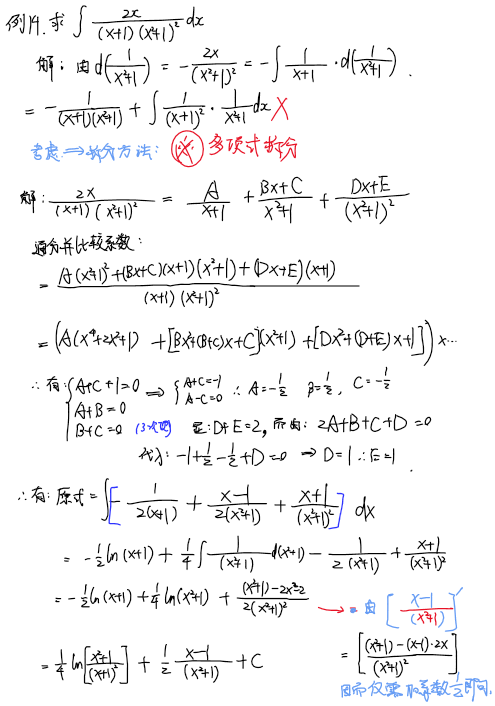 例14. 求 ∫ 2x/((x+1)(x²+1)²) dx
解: 由 d(1/(x²+1)) = - 2x/(x²+1)² = -∫ 1/(x+1) · d(1/(x²+1)) .
= - 1/((x+1)(x²+1)) + ∫ 1/(x+1)² · 1/(x²+1) dx X
考虑 ⇒ 拆分方法: ※ 多项式拆分
解: 2x/((x+1)(x²+1)²) = A/(x+1) + (Bx+C)/(x²+1) + (Dx+E)/(x²+1)²
通分并比较系数:
= (A(x²+1)²+(Bx+C)(x+1)(x²+1)+(Dx+E)(x+1))/((x+1)(x²+1)²)
= (A(x⁴+2x²+1) + [Bx²+(B+C)x+C](x²+1) + [Dx²+(D+E)x+1]) x...
∴ 有: { A+C+1=0 ⇒ { A+C=-1 A-C=0 ∴ A=-1/2 B=1/2, C=-1/2
A+B=0
B+C=0 D+E=2, 2A+B+C+D=0
代入: -1+1/2-1/2+D=0 ⇒ D=1 ∴E=1
∴ 有: 原式 = ∫[- 1/(2(x+1)) + (x-1)/(2(x²+1)) + (x+1)/(x²+1)²] dx
= -1/2 ln(x+1) + 1/4 ∫ 1/(x²+1) d(x²+1) - 1/(2(x²+1)) + (x+1)/(x²+1)²
= -1/2 ln(x+1) + 1/4 ln(x²+1) + ((x²+1)-2x²-2)/(2(x²+1)²) → = 由 [(x-1)/(x²+1)]′
= 1/4 ln[(x²+1)/(x+1)²] + 1/2 (x-1)/(x²+1) + C = [((x²+1)-(x-1)·2x)/(x²+1)²]
因而仅需取系数1/2即可.